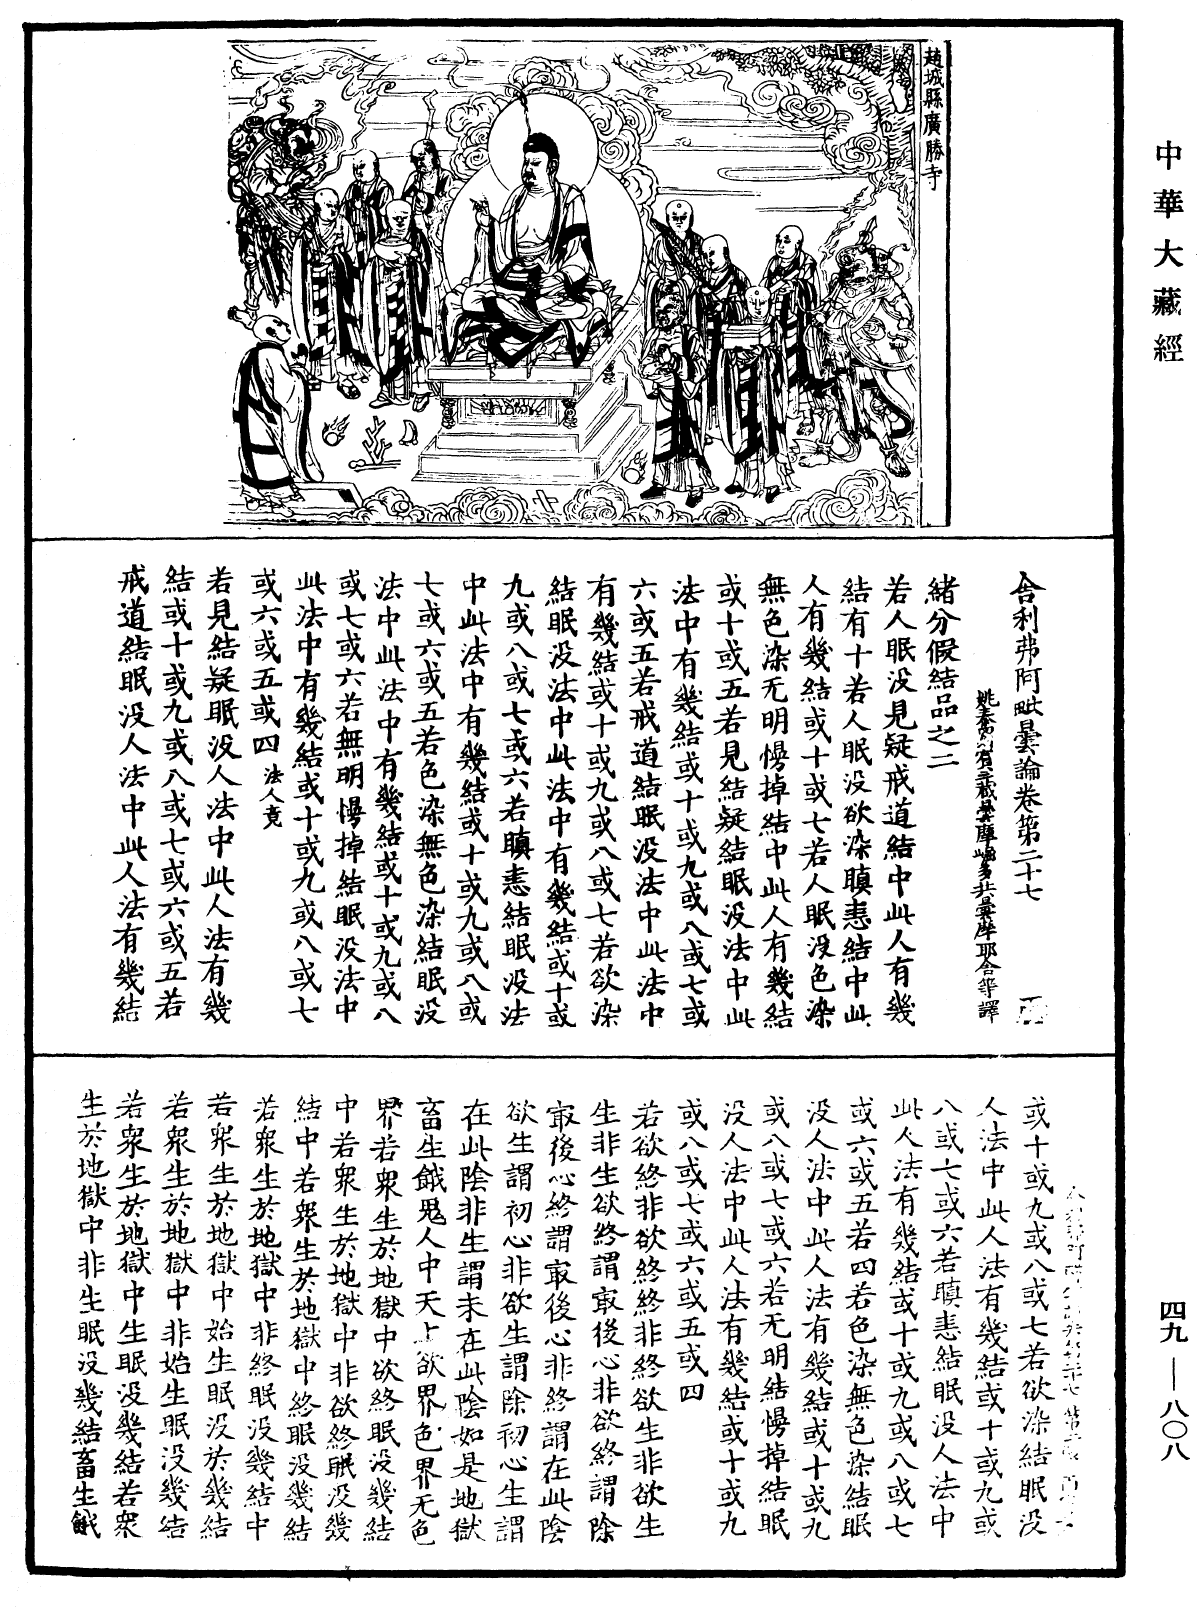 中華大藏經
四九—八〇八
趙城縣廣勝寺
舍利弗阿毗曇論卷第二十七
姚秦罽賓三藏曇摩崛多共曇摩耶舍等譯
緒分假結品之二
若人眠没見疑戒道結中此人有幾
結有十若人眠没欲染瞋恚結中此
人有幾結或十或七若人眠没色染
無色染无明慢掉結中此人有幾結
或十或五若見結疑結眠没法中此
法中有幾結或十或九或八或七或
六或五若戒道結眠没法中此法中
有幾結或十或九或八或七若欲染
結眠没法中此法中有幾結或十或
九或八或七或六若瞋恚結眠没法
中此法中有幾結或十或九或八或
七或六或五若色染無色染結眠没
法中此法中有幾結或十或九或八
或七或六若無明慢掉結眠没法中
此法中有幾結或十或九或八或七
或六或五或四 法人竟
若見結疑眠没人法中此人法有幾
結或十或九或八或七或六或五若
戒道結眠没人法中此人法有幾結
或十或九或八或七若欲染結眠没
人法中此人法有幾結或十或九或
八或七或六若瞋恚結眠没人法中
此人法有幾結或十或九或八或七
或六或五若四若色染無色染結眠
没人法中此人法有幾結或十或九
或八或七或六若无明結慢掉結眠
没人法中此人法有幾結或十或九
或八或七或六或五或四
若欲終非欲終終非終欲生非欲生
生非生欲終謂最後心非欲終謂除
最後心終謂最後心非終謂在此陰
欲生謂初心非欲生謂除初心生謂
在此陰非生謂未在此陰如是地獄
畜生餓鬼人中天上欲界色界无色
界若衆生於地獄中欲終眠没幾結
中若衆生於地獄中非欲終眠没幾
結中若衆生於地獄中終眠没幾結
若衆生於地獄中非終眠没幾結中
若衆生於地獄中始生眠没於幾結
若衆生於地獄中非始生眠没幾結
若衆生於地獄中生眠没幾結若衆
生於地獄中非生眠没幾結畜生餓